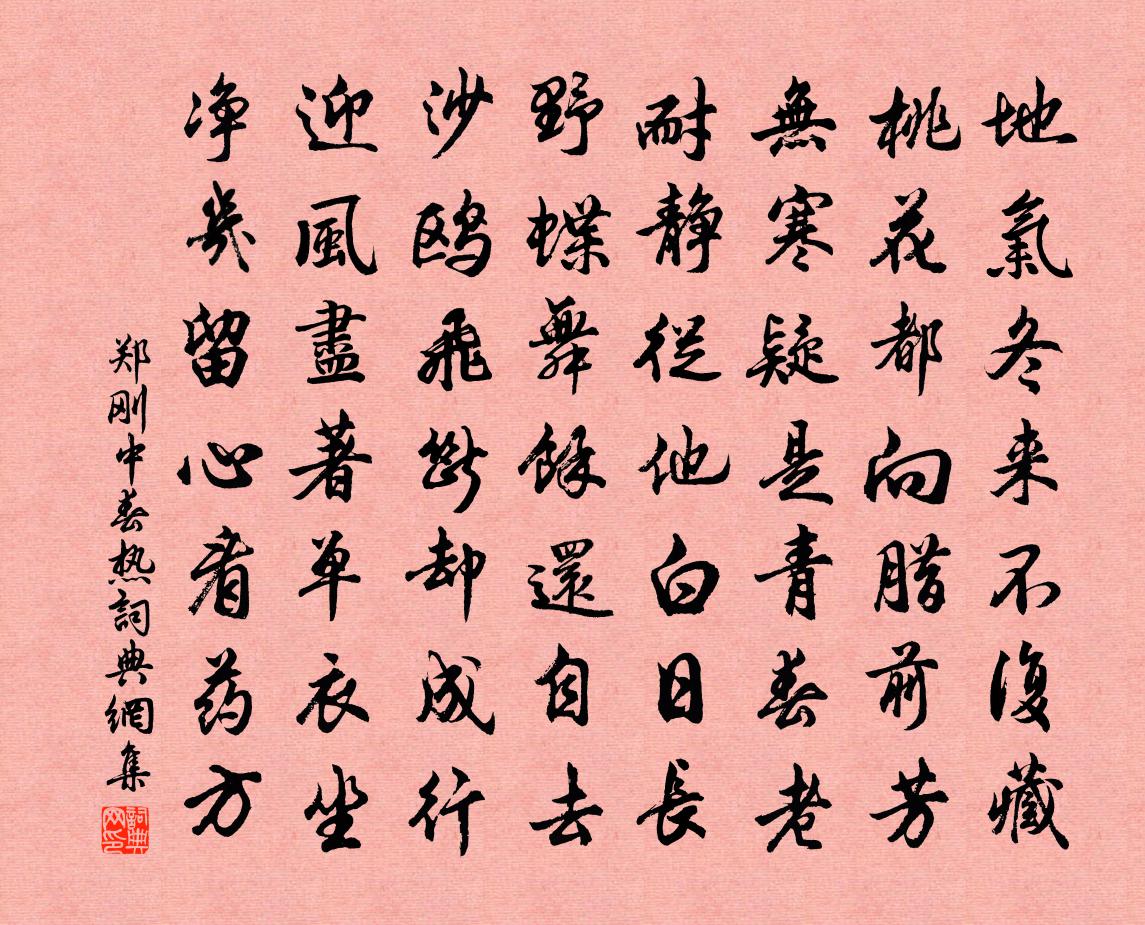 地氣冬来不復藏
桃花都向腊前芳
無寒疑是青春老
耐静從他白日長
野蝶舞餘還自去
沙鸥飛斷却成行
迎風盡著单衣坐
净几留心看药方
郑刚中春热詞典網集
詞典网印